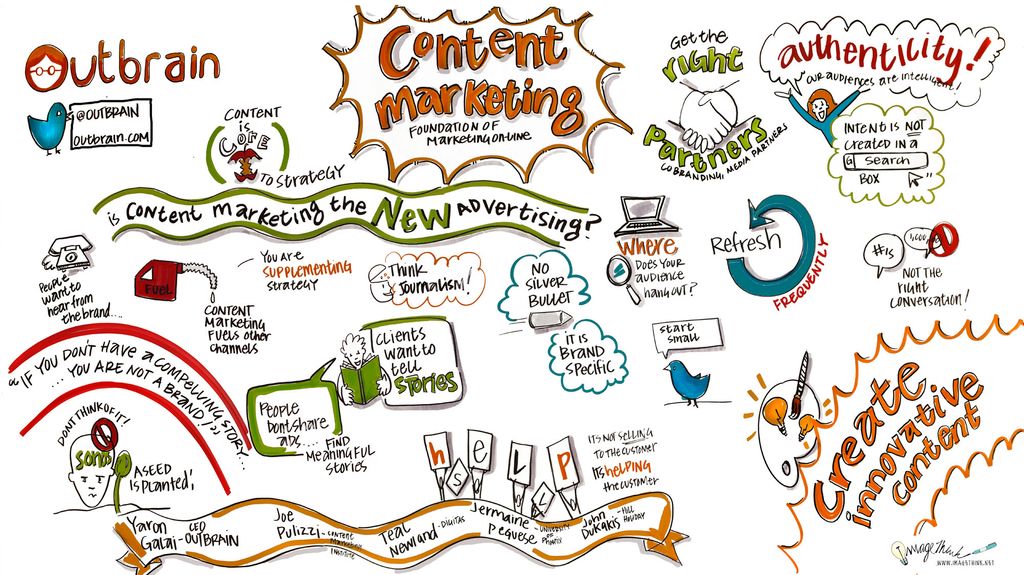 Outbrain
@OUTBRAIN
OUTBRAIN.COM
CONTENT
is
CORE
TO STRATEGY
Content
marketing
FOUNDATION OF
MARKETING ONLINE
Get the
right
Partners
COBRANDING, MEDIA PARTNERS
authenticity!
OUR AUDIENCES ARE INTELLIGENT!
INTENT IS NOT
CREATED IN A
G SEARCH
BOX
"
is CONTENT MARKETING the NEW ADVERTISING?
PEOPLE
WANT to
HEAR FROM
the BRAND....
FUEL
CONTENT
MARKETING
FUELS other
channels
YOU ARE
SUPPLEMENTING
STRATEGY
Think
Journalism!
NO
SILVER
BULLET
IT IS
BRAND
SPECIFIC
WHERE
DOES YOUR
AUDIENCE
HANG OUT?
Refresh
FREQUENTLY
#IS
NOT THE
right
CONVERSATION!
start
small
"IF YOU DON'T HAVE A COMPELLING STORY...
... YOU ARE NOT A BRAND!"
DON'T THINK OF IT!
A SEED
IS PLANTED!
CLIENTS
WANT to
tell
STORIES
PEOPLE
DON'T SHARE
ADS....
FIND
MEANINGFUL
STORIES
hSELLP
IT'S NOT SELLING
TO THE CUSTOMER
IT'S HELPING
the CUSTOMER
Create
innovative
content
Yaron
Galai - CEO
OUTBRAIN
Joe
Pulizzi - CONTENT
MARKETING
INSTITUTE
Teal
Newland - DIGITAS
Jermaine
Peguese - UNIVERSITY
OF
PHOENIX
John
Dukakis - HILL
HOLIDAY
imagethink
WWW.IMAGETHINK.NET